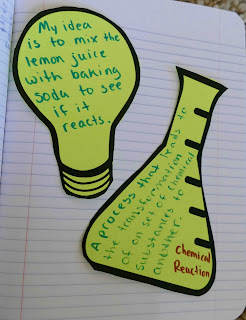 My idea
is to mix the
lemon juice
with baking
soda to see
if it
reacts.
A process that leads to
the transformation
of on set of chemical
substances to
another.
Chemical
Reaction